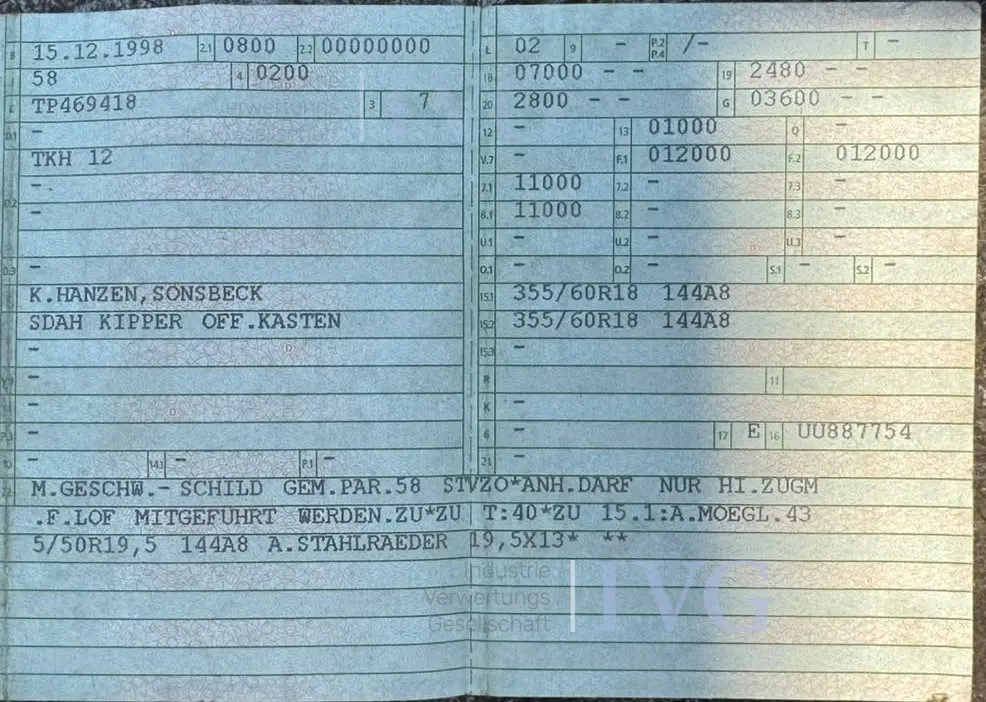 B 15.12.1998 2.1 0800 2.2 00000000
J 58 4 0200
E TP469418 3 7
D.1 -
TKH 12
D.2 -
-
D.3 -
K.HANZEN,SONSBECK
SDAH KIPPER OFF.KASTEN
-
V.9 -
14 -
P.3 -
10 - 14.1 - P.1 -
L 02 9 - P.2 P.4 /- T -
18 07000 - - 19 2480 - -
20 2800 - - G 03600 - -
12 - 13 01000 Q -
V.7 - F.1 012000 F.2 012000
7.1 11000 7.2 - 7.3 -
8.1 11000 8.2 - 8.3 -
U.1 - U.2 - U.3 -
O.1 - O.2 - S.1 - S.2 -
15.1 355/60R18 144A8
15.2 355/60R18 144A8
15.3 -
R 11
K -
6 - 17 E 16 UU887754
21 -
22 M.GESCHW.- SCHILD GEM.PAR.58 STVZO*ANH.DARF NUR HI.ZUGM
.F.LOF MITGEFUHRT WERDEN.ZU*ZU T:40*ZU 15.1:A.MOEGL.43
5/50R19,5 144A8 A.STAHLRAEDER 19,5X13* **
Industrie
Verwertungs
Gesellschaft
IVG